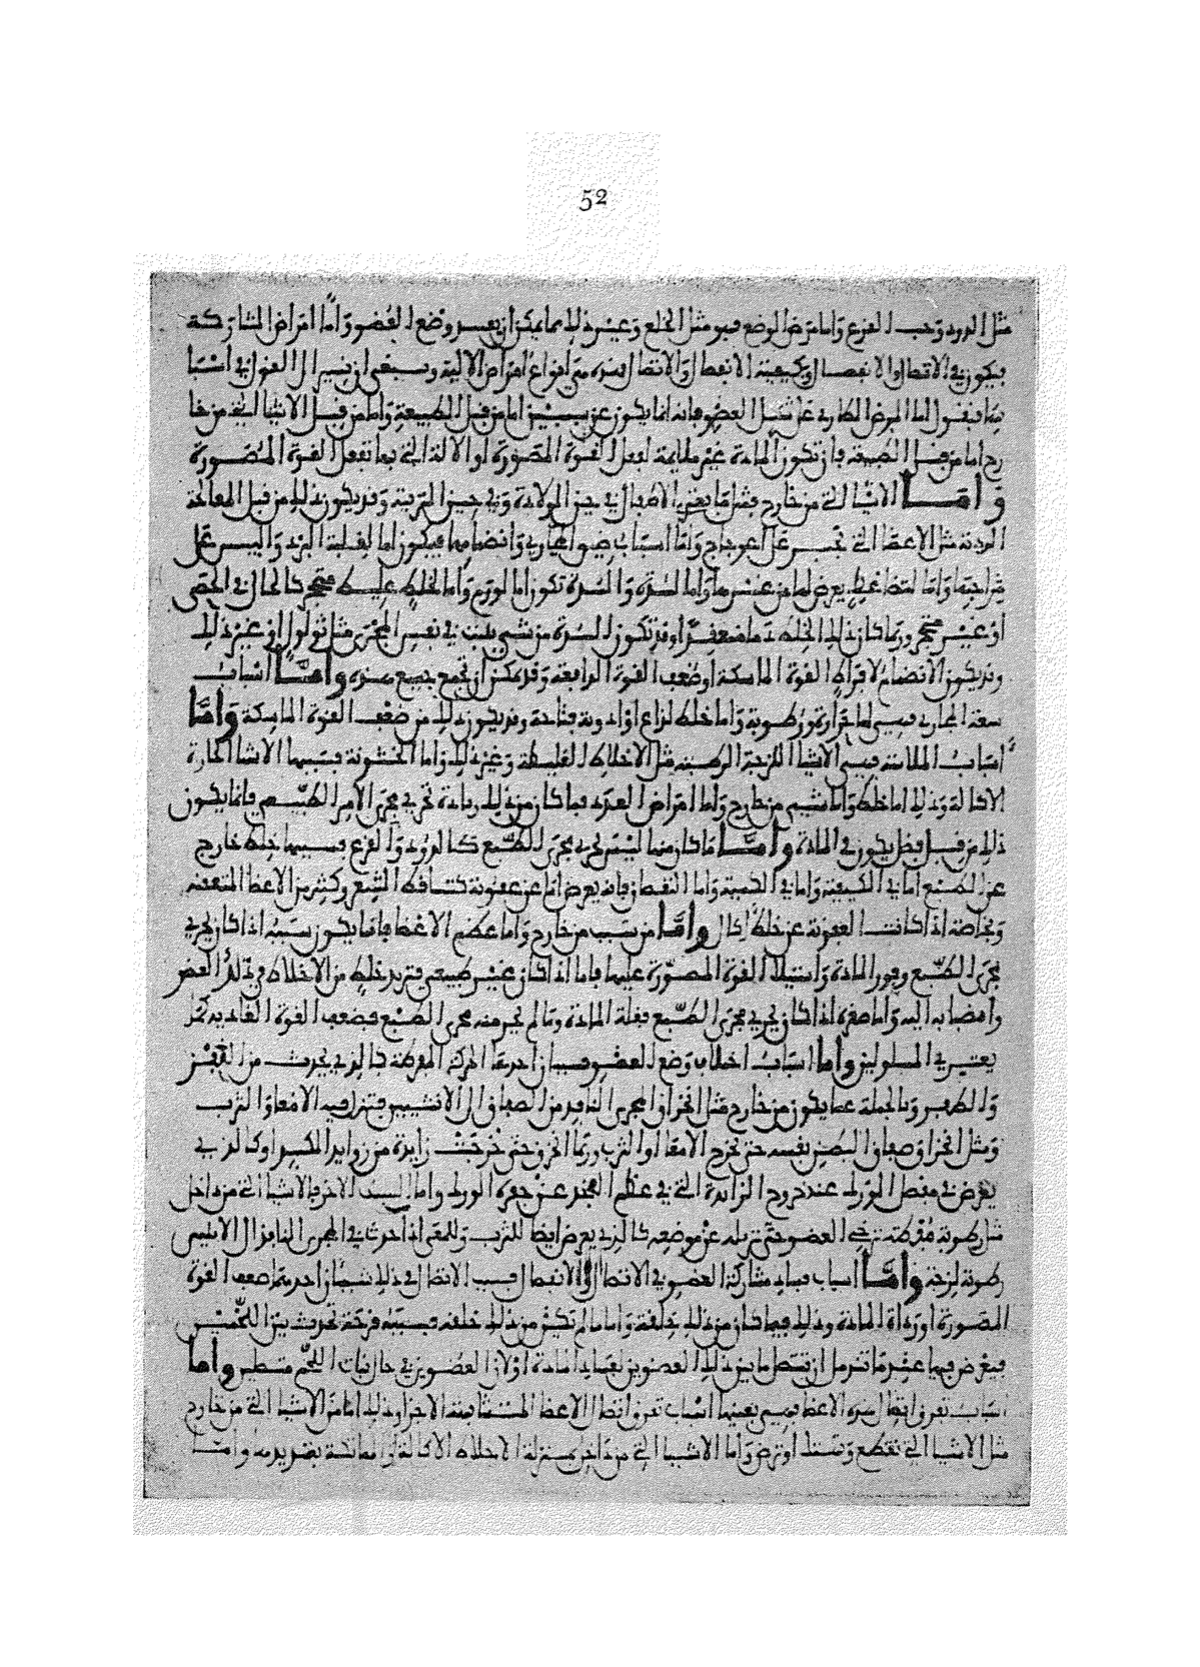 52
مثل الدود وحب القرع واما مرض الوضع فهو مثل الخلع وغير ذلك مما يمكن ان يغير وضع العضو واما امراض المشاركة
فيكون في الاتصال والانفصال وكيفية الانفصال والاتصال فهذه هي انواع امراض الالية وينبغي ان نسير الى القول في اسبا
بها فنقول اما المرض الطارى على شكل العضو فانه انما يكون عن سببين اما من قبل الطبيعة واما من قبل الاشيا التي من خا
رج اما من قبل الطبيعة فان تكون المادة غير ملايمة لفعل القوة المصورة او الالة التي بها تفعل القوة المصورة
واما الاشيا التي من خارج فمثل ما يعترى الاطفال في حين الولادة وفي حين التربية وقد يكون ذلك من قبل المعالجة
الردية مثل الاعضا التي تجبر على اعوجاج واما اسباب ضيق المجارى وانضمامها فيكون اما لغلبة البرد واليبس على
مزاجها واما لضاغط يعرض لها من غيرها واما لسدة والسدة تكون اما لورم واما لخلط غليظ متحجر كالحال في الحصى
او غير متحجر وربما كان ذلك الخلط دما منعقدا وقد تكون السدة من شي ينبت في نفس المجرى مثل ثولول او غير ذلك
وقد يكون الانضمام لافراط القوة الماسكة او ضعف القوة الدافعة وقد يمكن ان تجتمع جميع هذه واما اسباب
سعة المجارى فهي اما حرارة ورطوبة واما خلط لزاع او ادوية فتاحة وقد يكون ذلك من ضعف القوة الماسكة واما
اسباب الملاسة فهي الاشيا اللزجة الرطبة مثل الاخلاط الغليظة وغير ذلك واما الخشونة فسببها الاشيا الحارة
الاكالة وذلك اما خلط واما شي من خارج واما امراض العدد فما كان من ذلك زيادة تجري مجرى الامر الطبيعي فانما يكون
ذلك من قبل فضل يكون في المادة واما ما كان منها ليس يجري مجرى الطبع كالدود والقرع فسببها خلط خارج
عن الطبع اما في الكيفية واما في الكمية واما النقصان فانه يعرض اما عن عفونة كتساقط الشعر وكثير من الاعضا المتعفنة
وبخاصة اذا كانت العفونة عن خلط اكال واما من سبب من خارج واما عظم الاعضا فانما يكون سببه اذا كان يجري
مجرى الطبع وفور المادة واستيلا القوة المصورة عليها فاما اذا كان غير طبيعي فتزيد خلط من الاخلاط في ذلك العضو
وانصبابه اليه واما صغره اذا كان يجري مجرى الطبع فقلة المادة وما لم يجر منه مجرى الطبع فضعف القوة الغاذية كما
يعترى المسلولين واما اسباب اختلاف وضع العضو فسببان احدهما الحركة المفرطة كالذي يحدث من القفز
والطفر وبالجملة عما يكون من خارج مثل انخراق المجرى النافذ من الصفاق الى الانثيين فتنزل فيه الامعا والثرب
ومثل انخراق صفاق البطن نفسه حتى تخرج الامعا او الثرب وربما انخرق حتى خرجت زايدة من زوايد الكبد او كالذي
يعرض في مفصل الورك عند خروج الزايدة التي في عظم الفخذ عن حفرة الورك واما السبب الاخر فالاشيا التي من داخل
مثل رطوبة مفرطة ترخى العضو حتى تزيله عن موضعه كالذي يعرض ايضا للثرب وللمعى اذا حدث في المجرى النافذ الى الانثيين
رطوبة لزجة واما اسباب فساد مشاركة العضو في الاتصال او في الانفصال فسبب الاتصال في ذلك شيئان احدهما ضعف القوة
المصورة او رداة المادة وذلك فيما كان من ذلك خلقة واما ما لم تكن من ذلك خلقه فسببه قرحة تحدث بين اللحمين
فيعرض فيها عندما تندمل ان يتصل ما بين ذلك العضوين لفساد المادة او لان العضوين في حال نبات اللحم متصلين واما
اسباب تفرق اتصال هذه الاعضا فهي بعينها اسباب تفرق اتصال الاعضا المتشابهة الاجزا وذلك اما من الاشيا التي من خارج
مثل الاشيا التي تقطع وتبسط او ترض واما الاشيا التي من داخل بمنزلة الاخلاط الاكالة واما